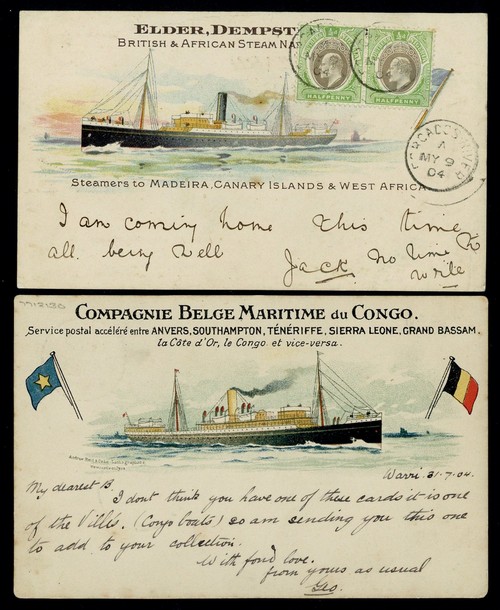 ELDER, DEMPST
BRITISH & AFRICAN STEAM NA
HALFPENNY HALFPENNY
FORCADOS RIVER
A
MY 9
04
STEAMERS TO MADEIRA, CANARY ISLANDS & WEST AFRICA
I am coming home this time
all being well Jack no time to
write
7712130
COMPAGNIE BELGE MARITIME DU CONGO.
Service postal accéléré entre ANVERS, SOUTHAMPTON, TÉNÉRIFFE, SIERRA LEONE, GRAND BASSAM,
la Côte d'Or, le Congo et vice-versa.
Warri. 31.7.04.
My dearest B.
I dont think you have one of these cards it is one
of the Villes. (Congo boats) so am sending you this one
to add to your collection.
With fond love.
from yours as usual
Geo.